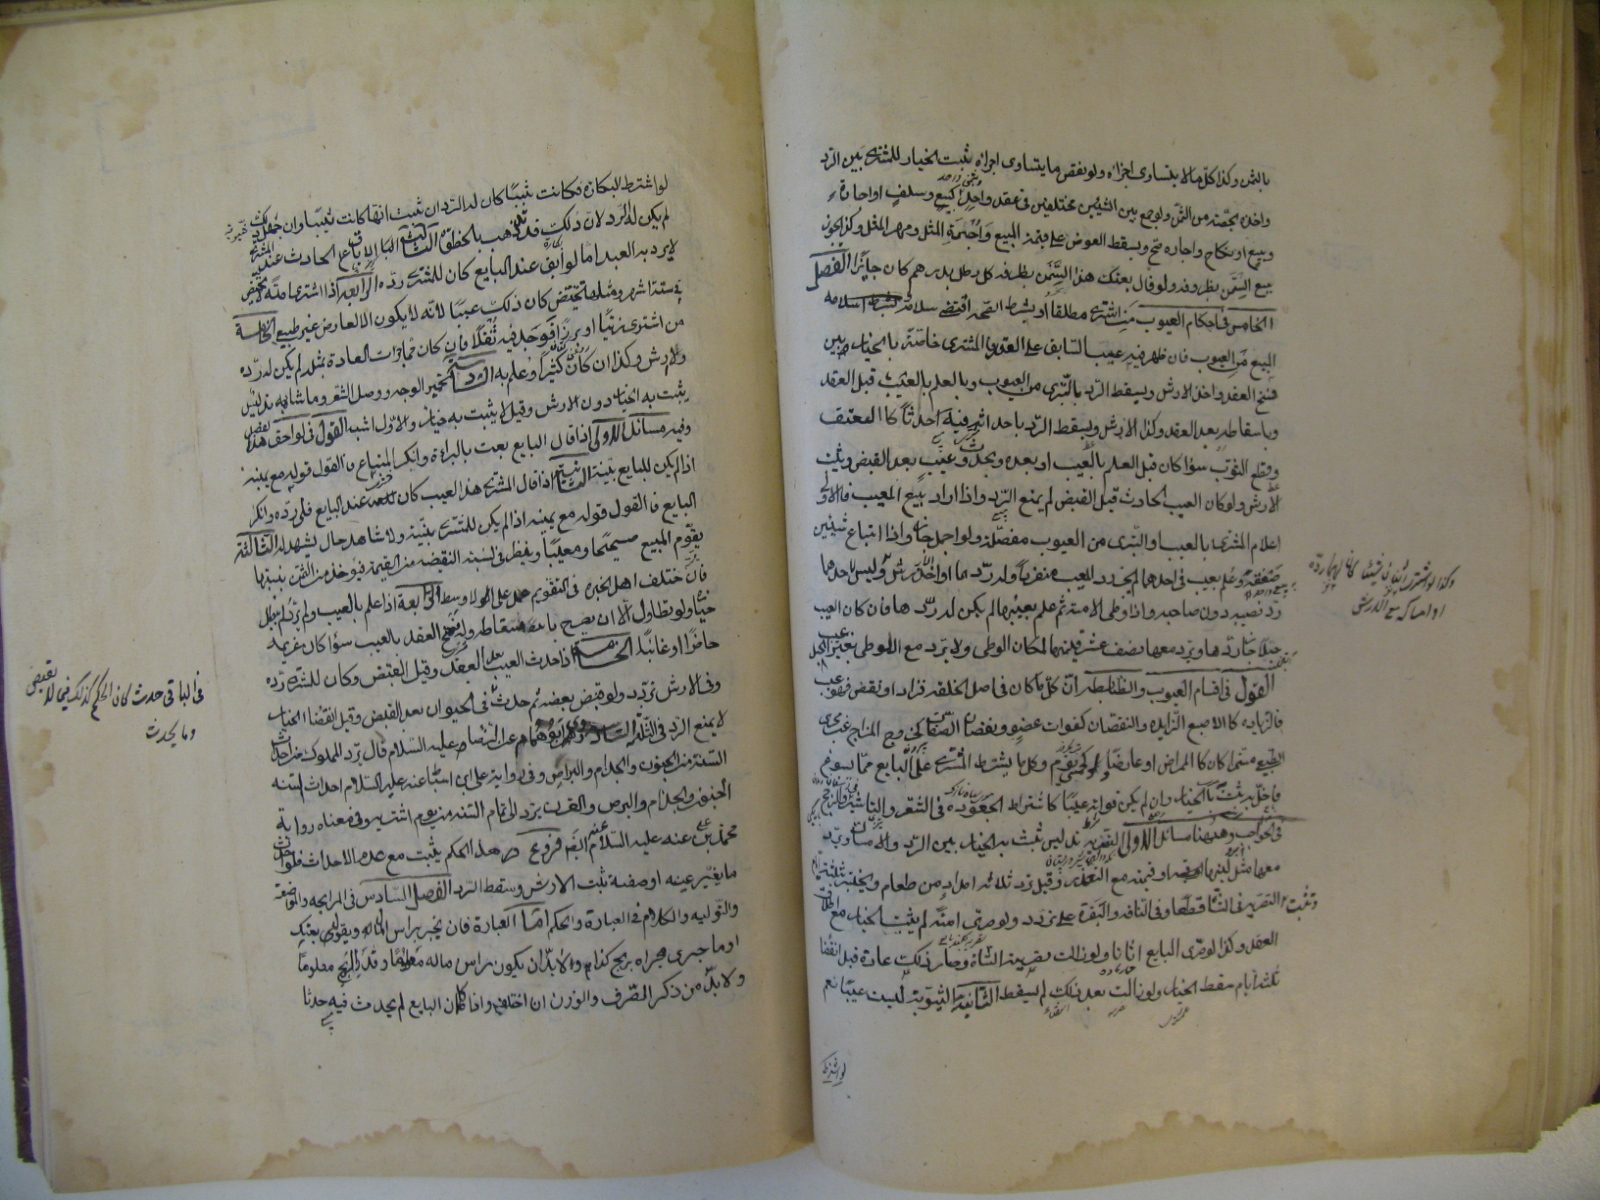 بالثمن وكذا كل ما لا يتساوى اجزاؤه ولو نقص ما يتساوى اجزاؤه ثبت الخيار للمشترى بين الرد
واخذه بحصته من الثمن ولو جمع بين الشيئين مختلفين فى عقد واحد كبيع وسلف او اجارة
وبيع او نكاح واجاره صح ويسقط العوض على قيمة المبيع واجرة المثل ومهر المثل وكذا يجوز
بيع السمن بظروفه ولو قال بعتك هذا السمن بظرفه كل رطل بدرهم كان جايزا الفصل
الخامس فى احكام العيوب من اشترى مطلقا او بشرط الصحه اقتضى سلامة
المبيع من العيوب فان ظهر فيه عيب سابق على العقد فالمشترى خاصة بالخيار بين
فسخ العقد واخذ الارش ويسقط الرد بالتبرى من العيوب وبالعلم بالعيب قبل العقد
وباسقاطه بعد العقد وكذا الارش ويسقط الرد باحداثه فيه احداثا كالعتق
وقطع الثوب سواء كان قبل العلم بالعيب او بعده وبحدوث عيب بعد القبض ويثبت
الارش ولو كان العيب الحادث قبل القبض لم يمنع الرد واذا اراد بيع المعيب فالاولى
اعلام المشترى بالعيب والتبرى من العيوب مفصلة ولو اجمل جاز واذا ابتاع شيئين
صفقة وعلم بعيب فى احدهما لم يجز رد المعيب منفردا وله ردهما او اخذ الارش وليس لاحدهما
رد نصيبه دون صاحبه واذا وطى الامة ثم علم بعيبها لم يكن له ردها فان كان العيب
حبلا جاز له ردها ويرد معها نصف عشر قيمتها لمكان الوطى ولا يرد مع الوطى بغير عيب الحبل
القول فى اقسام العيوب والظابط ان كل ما كان فى اصل الخلقه فزاد او نقص فهو عيب
فالزياده كالاصبع الزايده والنقصان كفوات عضو ونقصان الصفات كخروج المزاج عن مجرى
الطبيعى مستمرا كان كالممراض او عارضا ولو كحمى يوم وكل ما يشترط المشترى على البايع مما يسوغ
فاخل به يثبت به الخيار وان لم يكن فواته عيبا كاشتراط الجعوده فى الشعر والتاشير والزجج
فى الحواجب وهيهنا مسائل الاولى التصريه تدليس يثبت به الخيار بين الرد والامساك ويرد
معها مثل لبنها او قيمته مع التعذر وقيل يرد ثلاثه امداد من طعام
وتثبت التصريه فى الشاة قطعا وفى الناقه والبقرة على تردد ولو صرى امة لم يثبت الخيار مع اطلاق
العقد وكذا لو صرى البايع اتانا ولو زالت تصرية الشاة وصار ذلك عادة قبل انقضا
ثلثة ايام سقط الخيار ولو زالت بعد ذلك لم يسقط الثانية الثيوبة ليست عيبا نعم
لو اشترط
او امساكه مع الارش
لو اشترط البكارة فكانت ثيبا كان له الرد ان ثبت انها كانت ثيبا وان جهل ذلك
لم يكن له الرد لان ذلك قد يذهب بالخطوة الثالثة الاباق الحادث عند المشترى
لا يرد به العبد اما لو ابق عند البايع كان للمشترى رده الرابعة اذا اشترى امة لا تحيض
فى ستة اشهر ومثلها تحيض كان ذلك عيبا لانه لا يكون الا لعارض غير طبيعى الخامسة
من اشترى زيتا او بزرا فوجد فيه ثفلا فان كان مما جرت العادة بمثله لم يكن له رده
ولا ارش وكذا ان كان كثيرا وعلم به السادسة تحمير الوجه ووصل الشعر وما شابهه تدليس
يثبت به الخيار دون الارش وقيل لا يثبت به خيار والاول اشبه القول فى لواحق هذا الفصل
وفيه مسائل الاولى اذا قال البايع بعت بالبراءة وانكر المبتاع فالقول قوله مع يمينه
اذا لم يكن للبايع بينة الثانية اذا قال المشترى هذا العيب كان عند البايع فلى رده وانكر
البايع فالقول قوله مع يمينه اذا لم يكن للمشترى بينة ولا شاهد حال يشهد له الثالثة
يقوم المبيع صحيحا ومعيبا وينظر فى نسبة النقيصه من القيمة فيوخذ من الثمن بنسبتها
فان اختلف اهل الخبره فى التقويم عمل على الاوسط الرابعة اذا علم بالعيب ولم يرد لم يبطل
خياره ولو تطاول الا ان يصرح باسقاطه وله فسخ العقد بالعيب سواء كان غريمه
حاضرا او غائبا الخامسة اذا حدث العيب بعد العقد وقبل القبض كان للمشترى رده
وفى الارش تردد ولو قبض بعضه ثم حدث فى الحيوان بعد القبض وقبل انقضا الخيار
لا يمنع الرد فى الثلثة السادسة روى ابو همام عن الرضا عليه السلام قال يرد المملوك من احداث
السنة من الجنون والجذام والبرص وفى رواية على بن اسباط عنه عليه السلام احداث السنه
الجنون والجذام والبرص والقرن يرد الى تمام السنة من يوم اشتريه وفى معناه رواية
محمد بن على عنه عليه السلام ايضا فرع هذا الحكم يثبت مع عدم الاحداث فلو احدث
ما يغير عينه او صفته ثبت الارش وسقط الرد الفصل السادس فى المرابحه والمواضعة
والتوليه والكلام فى العبارة والحكم اما العبارة فان يخبر براس المال ويقول بعتك
او ما جرى مجراه بربح كذا ولا بد ان يكون راس ماله معلوما وقدر الربح معلوما
ولا بد من ذكر الصرف والوزن ان اختلفا واذا كان البايع لم يحدث فيه حدثا
فى الباقى حدث كان الحكم كذلك فيما لم يقبض
وما يحدث